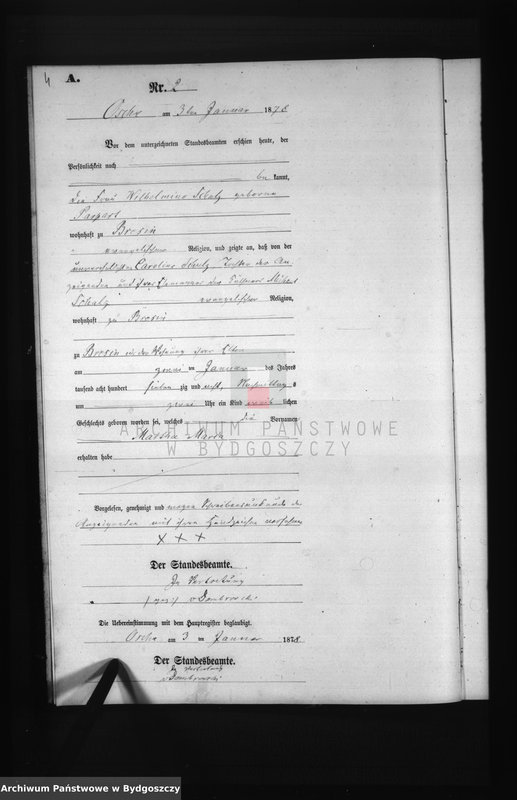 4
A.
Nr. 2
Osche am 3ten Januar 1878
Vor dem unterzeichneten Standesbeamten erschien heute, der
Persönlichkeit nach
be kannt,
die Frau Wilhelmine Schulz geborene
wohnhaft zu Bresin
evangelischer Religion, und zeigte an, daß von der
unverehelichten Caroline Schulz, Tochter der An-
zeigenden und ihres Ehemannes des
Schulz evangelischer Religion,
wohnhaft zu Bresin
zu Bresin in der Wohnung ihrer Eltern
am zwei ten Januar des Jahres
tausend acht hundert sieben zig und acht, Nachmittag s
um Uhr ein Kind weib lichen
Geschlechts geboren worden sei, welches die Vornamen
Martha Maria
erhalten habe
Vorgelesen, genehmigt und wegen Schreibensunkunde der
Anzeigenden mit ihrem Handzeichen versehen
+ + +
Der Standesbeamte.
In Vertretung
(gez:) v Dombrowski
Die Uebereinstimmung mit dem Hauptregister beglaubigt.
Osche am 3 ten Januar 1878
Der Standesbeamte.
In Vertretung
v Dombrowski
ARCHIWUM PAŃSTWOWE
W BYDGOSZCZY
Archiwum Państwowe w Bydgoszczy